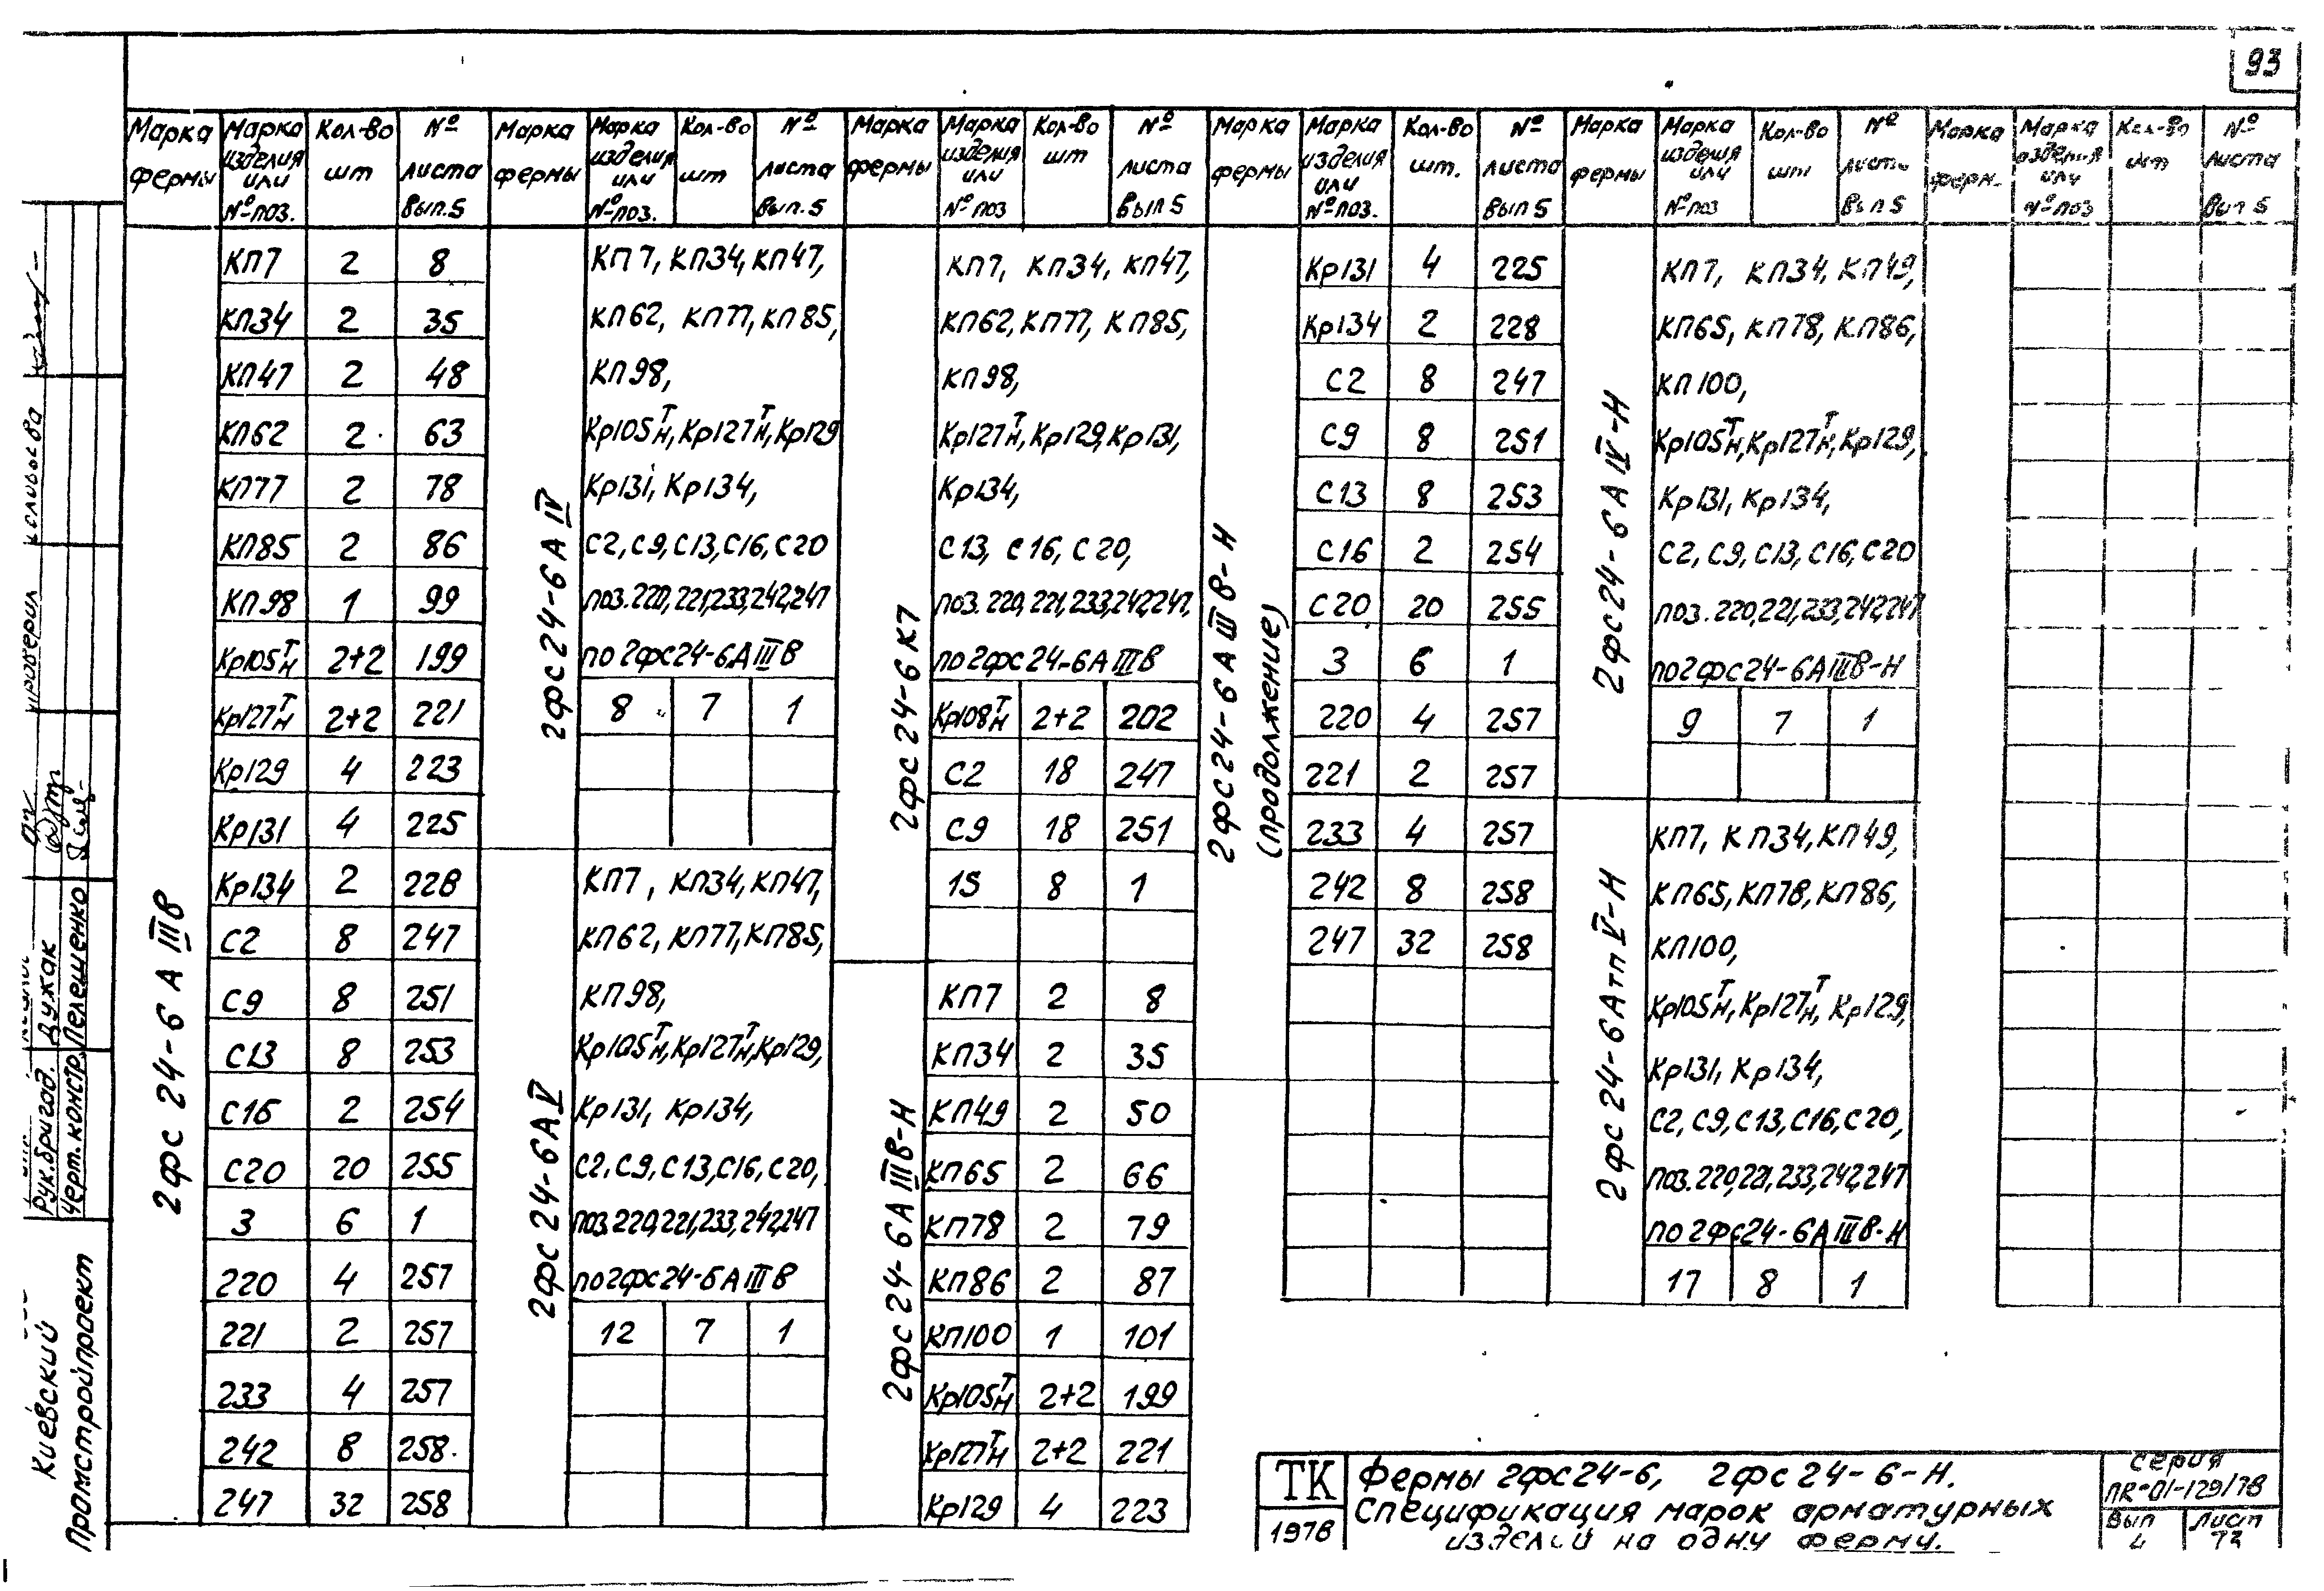 93
Марка фермы | Марка изделия или № поз. | Кол-во шт | № листа Вып.5
2ФС 24-6 А IIIВ
КП7 | 2 | 8
КП34 | 2 | 35
КП47 | 2 | 48
КП62 | 2 | 63
КП77 | 2 | 78
КП85 | 2 | 86
КП98 | 1 | 99
Кр105 Т/Н | 2+2 | 199
Кр127 Т/Н | 2+2 | 221
Кр129 | 4 | 223
Кр131 | 4 | 225
Кр134 | 2 | 228
С2 | 8 | 247
С9 | 8 | 251
С13 | 8 | 253
С16 | 2 | 254
С20 | 20 | 255
3 | 6 | 1
220 | 4 | 257
221 | 2 | 257
233 | 4 | 257
242 | 8 | 258
247 | 32 | 258
Марка фермы | Марка изделия или № поз. | Кол-во шт | № листа Вып.5
2ФС 24-6 А IV
КП7, КП34, КП47,
КП62, КП77, КП85,
КП98,
Кр105 Т/Н, Кр127 Т/Н, Кр129
Кр131, Кр134,
С2, С9, С13, С16, С20
поз. 220, 221, 233, 242, 247
по 2ФС24-6А IIIВ
8 | 7 | 1
2ФС 24-6А V
КП7, КП34, КП47,
КП62, КП77, КП85,
КП98,
Кр105 Т/Н, Кр127 Т/Н, Кр129,
Кр131, Кр134,
С2, С9, С13, С16, С20,
поз. 220, 221, 233, 242, 247
по 2ФС24-6А IIIВ
12 | 7 | 1
Марка фермы | Марка изделия или № поз | Кол-во шт | № листа Вып 5
2ФС 24-6 К7
КП7, КП34, КП47,
КП62, КП77, КП85,
КП98,
Кр127 Т/Н, Кр129, Кр131,
Кр134,
С13, С16, С20,
поз. 220, 221, 233, 242, 247,
по 2ФС24-6А IIIВ
Кр108 Т/Н | 2+2 | 202
С2 | 18 | 247
С9 | 18 | 251
15 | 8 | 1
2ФС 24-6А IIIВ-Н
КП7 | 2 | 8
КП34 | 2 | 35
КП49 | 2 | 50
КП65 | 2 | 66
КП78 | 2 | 79
КП86 | 2 | 87
КП100 | 1 | 101
Кр105 Т/Н | 2+2 | 199
Кр127 Т/Н | 2+2 | 221
Кр129 | 4 | 223
Марка фермы | Марка изделия или № поз. | Кол-во шт. | № листа Вып 5
2ФС 24-6 А IIIВ-Н
(продолжение)
Кр131 | 4 | 225
Кр134 | 2 | 228
С2 | 8 | 247
С9 | 8 | 251
С13 | 8 | 253
С16 | 2 | 254
С20 | 20 | 255
3 | 6 | 1
220 | 4 | 257
221 | 2 | 257
233 | 4 | 257
242 | 8 | 258
247 | 32 | 258
Марка фермы | Марка изделия или № поз | Кол-во шт | № листа Вып 5
2ФС 24-6 А IV-Н
КП7, КП34, КП49,
КП65, КП78, КП86,
КП100,
Кр105 Т/Н, Кр127 Т/Н, Кр129,
Кр131, Кр134,
С2, С9, С13, С16, С20
поз. 220, 221, 233, 242, 247
по 2ФС24-6А IIIВ-Н
9 | 7 | 1
2ФС 24-6 Атп V-Н
КП7, КП34, КП49,
КП65, КП78, КП86,
КП100,
Кр105 Т/Н, Кр127 Т/Н, Кр129,
Кр131, Кр134,
С2, С9, С13, С16, С20,
поз. 220, 221, 233, 242, 247
по 2ФС24-6А IIIВ-Н
17 | 8 | 1
Марка ферм. | Марка изделия или № поз | Кол-во шт | № листа Вып 5
проверил
Рук. бригад. Дужак
Черт. констр. Пелешенко
Киевский
Промстройпроект
ТК
1978
Фермы 2ФС24-6, 2ФС24-6-Н.
Спецификация марок арматурных
изделий на одну ферму.
Серия
ПК-01-129/78
Вып 4
Лист 73